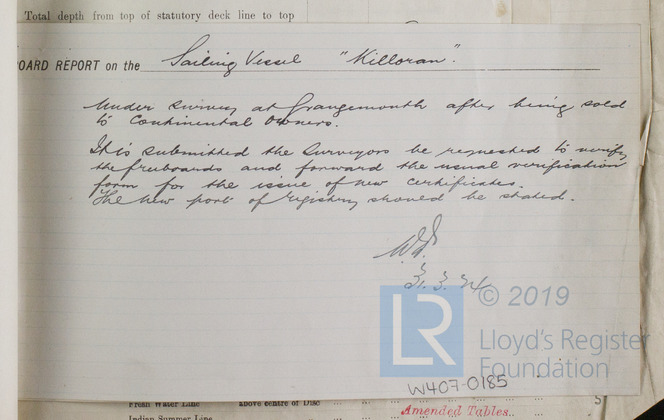 Total depth from top of statutory deck line to top
OARD REPORT on the Sailing Vessel "Killoran".
Under survey at Grangemouth after being sold
to Continental Owners.
It is submitted the Surveyors be requested to verify
the freeboards and forward the usual verification
form for the issue of new certificates.
The new port of registry should be stated.
31.3.24
© 2019
LR
Lloyd's Register
Foundation
W407-0185
Fresh Water Line above centre of Disc
Amended Tables.
Indian Summer Line